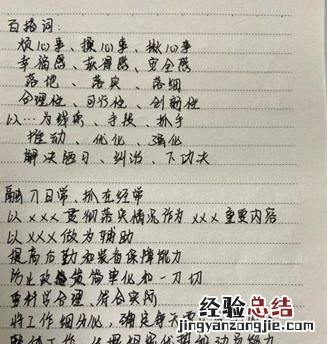 百搭词:
烦心事、操心事、揪心事
幸福感、获得感、安全感
落地、落实、落细
合理性、可行性、创新性
以…为线索、手段、抓手
推动、优化、强化
解决陋习、纠治、下功夫
融入日常、抓在经常
以×××贯彻落实情况作为×××重要内容
以×××做为辅助
提高后勤和装备保障能力
防止政策简单化和一刀切
更科学合理、符合实际
将工作细分化,确定每天
经验总结
xiangyangrc.com